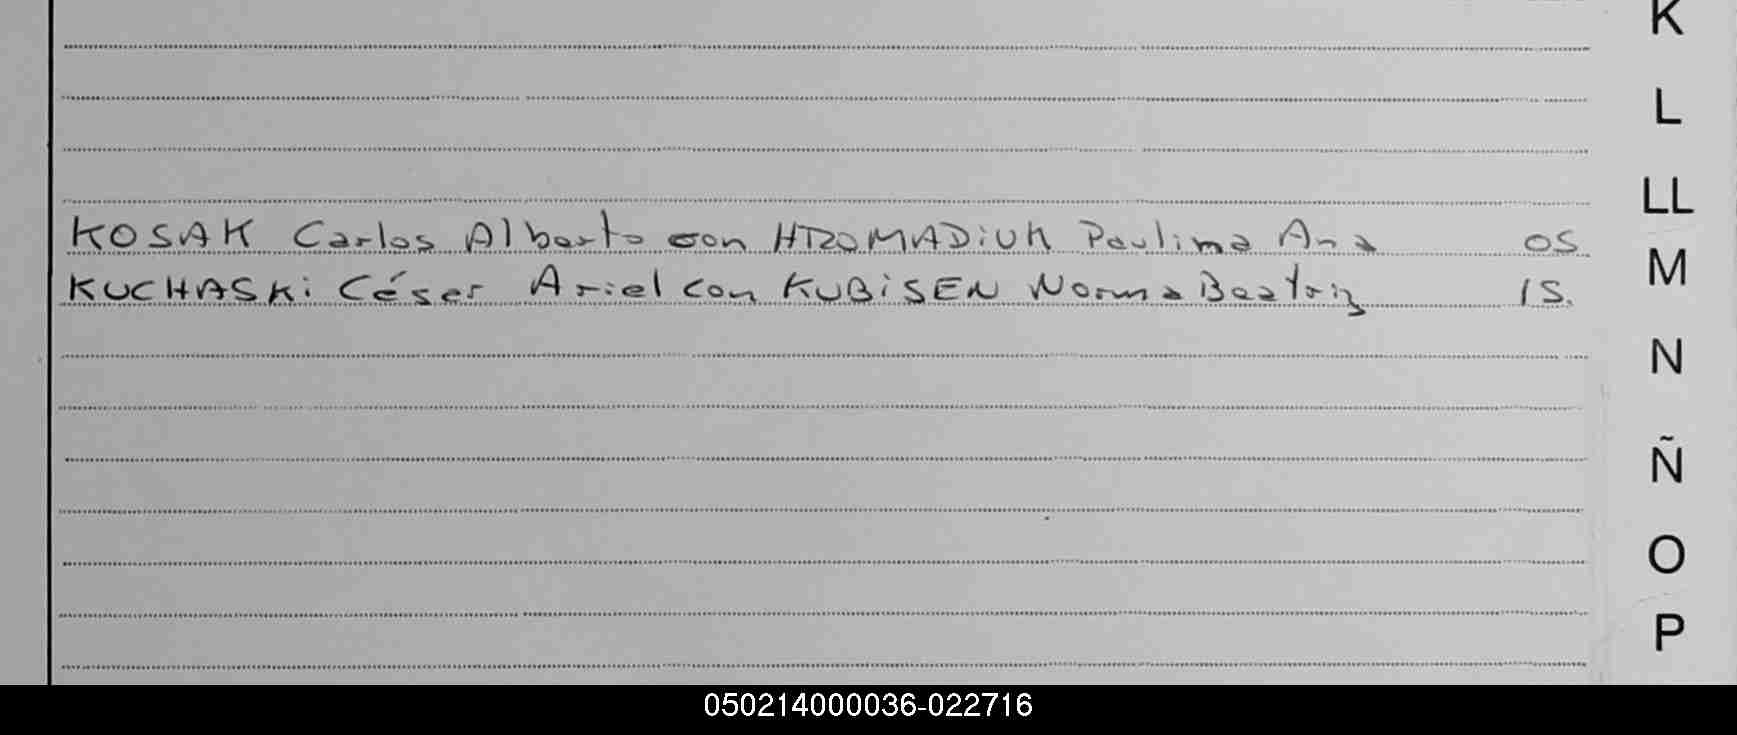 K
L
LL
KOSAK Carlos Alberto con HROMADiUK Paulina Ana 05
M
KUCHASKi César Ariel con KUBiSEN Norma Beatriz 15.
N
Ñ
O
P
050214000036-022716